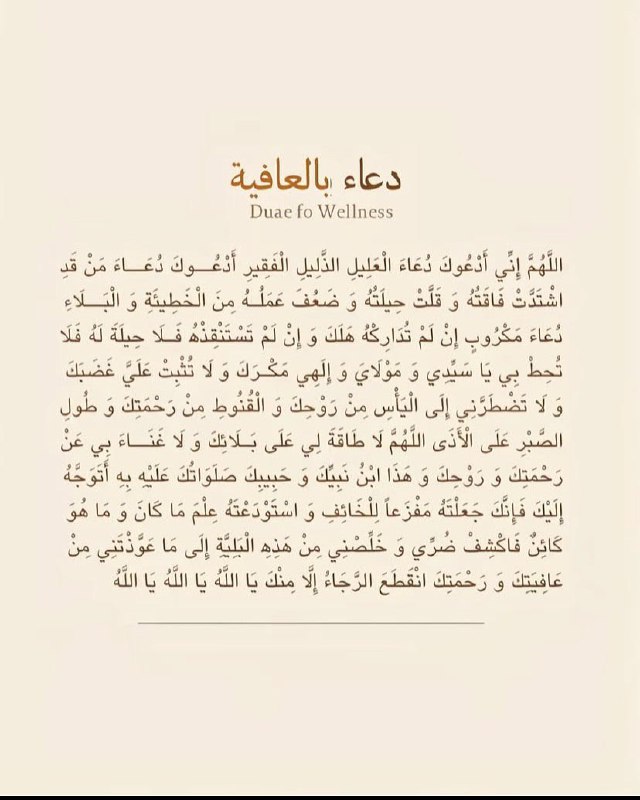 دعاء بالعافية
Duae fo Wellness
اللَّهُمَّ إِنِّي أَدْعُوكَ دُعَاءَ الْعَلِيلِ الذَّلِيلِ الْفَقِيرِ أَدْعُـــوكَ دُعَـــاءَ مَنْ قَدِ
اشْتَدَّتْ فَاقَتُهُ وَ قَلَّتْ حِيلَتُهُ وَ ضَعُفَ عَمَلُـــهُ مِنَ الْخَطِيئَةِ وَ الْبَـــلَاءِ
دُعَاءَ مَكْرُوبٍ إِنْ لَمْ تُدَارِكْهُ هَلَكَ وَ إِنْ لَمْ تَسْتَنْقِذْهُ فَـــلَا حِيلَةَ لَهُ فَلَا
تُحِطْ بِي يَا سَيِّدِي وَ مَوْلَايَ وَ إِلَهِي مَكْـــرَكَ وَ لَا تُثْبِتْ عَلَيَّ غَضَبَكَ
وَ لَا تَضْطَرَّنِي إِلَى الْيَأْسِ مِنْ رَوْحِكَ وَ الْقُنُوطِ مِنْ رَحْمَتِكَ وَ طُولِ
الصَّبْرِ عَلَى الْأَذَى اللَّهُمَّ لَا طَاقَةَ لِي عَلَى بَـــلَائِكَ وَ لَا غَنَـــاءَ بِي عَنْ
رَحْمَتِكَ وَ رَوْحِكَ وَ هَذَا ابْنُ نَبِيِّكَ وَ حَبِيبِكَ صَلَوَاتُكَ عَلَيْهِ بِهِ أَتَوَجَّهُ
إِلَيْكَ فَإِنَّكَ جَعَلْتَهُ مَفْزَعاً لِلْخَائِفِ وَ اسْتَوْدَعْتَهُ عِلْمَ مَا كَانَ وَ مَا هُوَ
كَائِنٌ فَاكْشِفْ ضُرِّي وَ خَلِّصْنِي مِنْ هَذِهِ الْبَلِيَّةِ إِلَى مَا عَوَّذْتَنِي مِنْ
عَافِيَتِكَ وَ رَحْمَتِكَ انْقَطَعَ الرَّجَاءُ إِلَّا مِنْكَ يَا اللَّهُ يَا اللَّهُ يَا اللَّهُ